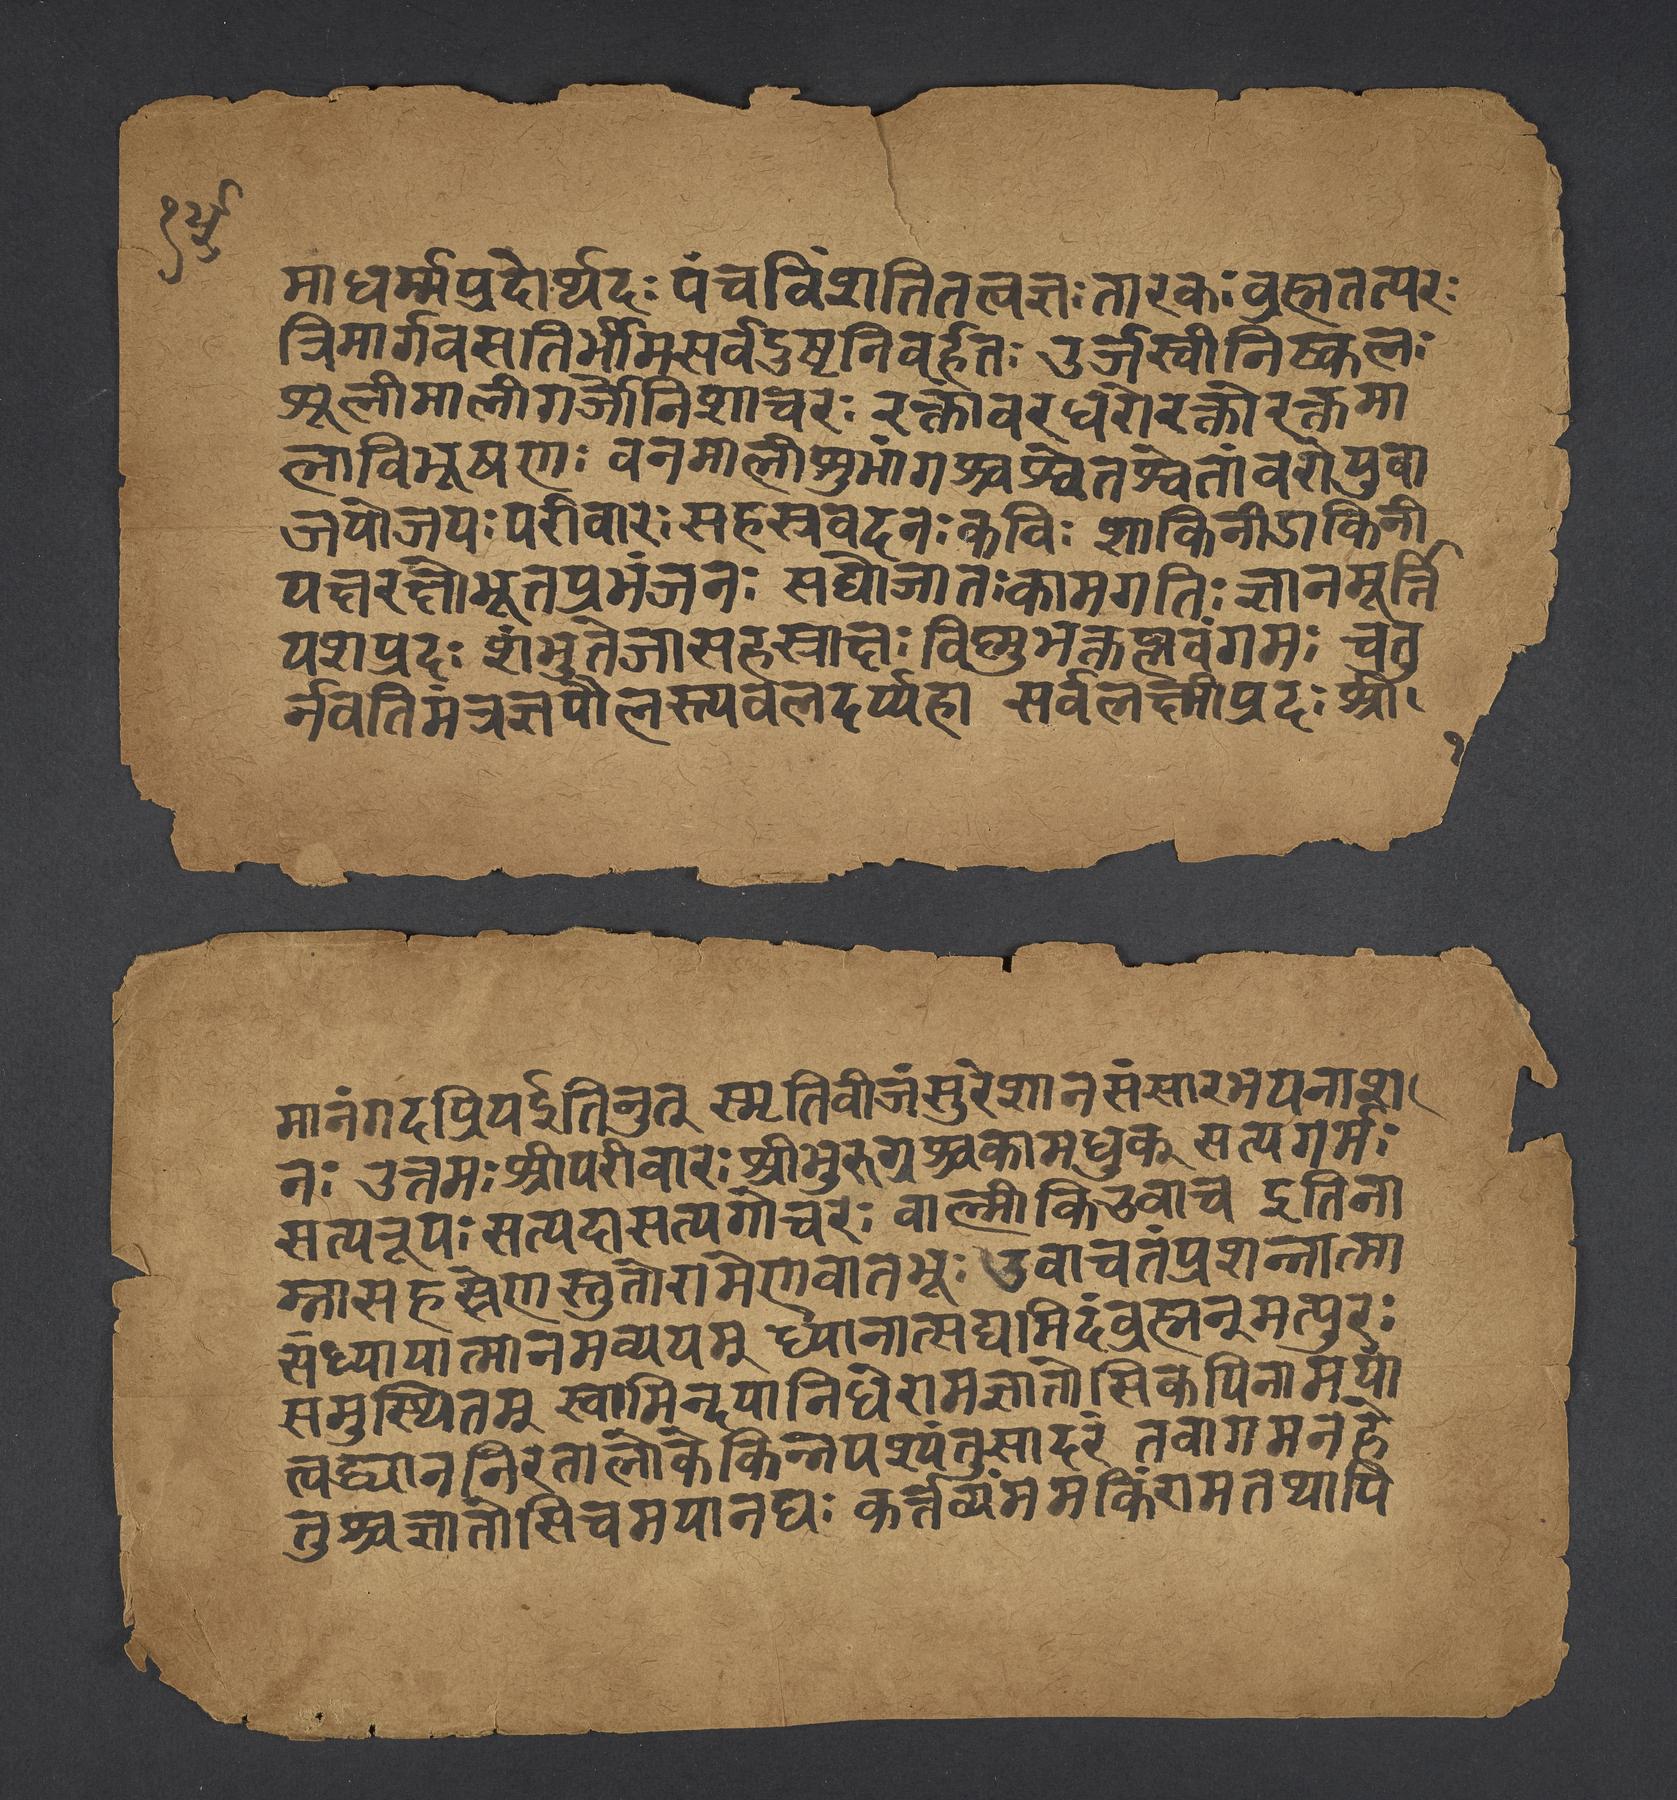 माधर्म्मप्रदोर्थदः पंचविंशतितत्वज्ञः तारकः व्रह्मतत्परः
त्रिमार्गवसतिर्भीमसर्वदुष्टनिवर्हतः उर्जस्वीनिष्कलः
श्रूलीमालीगर्जोनिशाचरः रक्तांवरधरोरक्तोरक्तमा
लाविभूषणः वनमालीश्रुभांगश्चश्वेतश्वेतांवरोयुवा
जयोजयः परीवारः सहस्रवदनः कविः शाकिनीडाकिनी
यक्षरक्षोभूतप्रभंजनः सद्योजातः कामगतिः ज्ञानमूर्त्ति
यशप्रदः शंभुतेजासहस्राक्षः विष्णुभक्तप्लवंगमः चतु
र्नवतिमंत्रज्ञपौलस्त्यवलदर्प्पहा सर्वलक्ष्मीप्रदः श्री
१
मानंगदप्रियर्इतिनुत् स्मृतिवीजंसुरेशानसंसारभयनाश
नः उत्तमः श्रीपरीवारः श्रीभुरुग्रश्चकामधुक् सत्यगर्भः
सत्यरूपः सत्यदासत्यगोचरः वाल्मीकिउवाच इतिना
म्नासहस्रेणस्तुतोरामेणवातभूः उवाचतंप्रशन्नात्मा
संध्यायात्मानमव्ययम् र्ध्यानात्सद्यामिदंव्रह्मनूमत्पुरः
समुस्थितम् स्वामिन्दयानिधेरामज्ञातोसिकपिनामयां
त्वद्ध्याननिरतालोकेकिन्नेपश्यंतुसादरं तवागमनहे
तुश्चज्ञातोसिचमयानघः कर्त्तव्यंममकिंरामतथापि